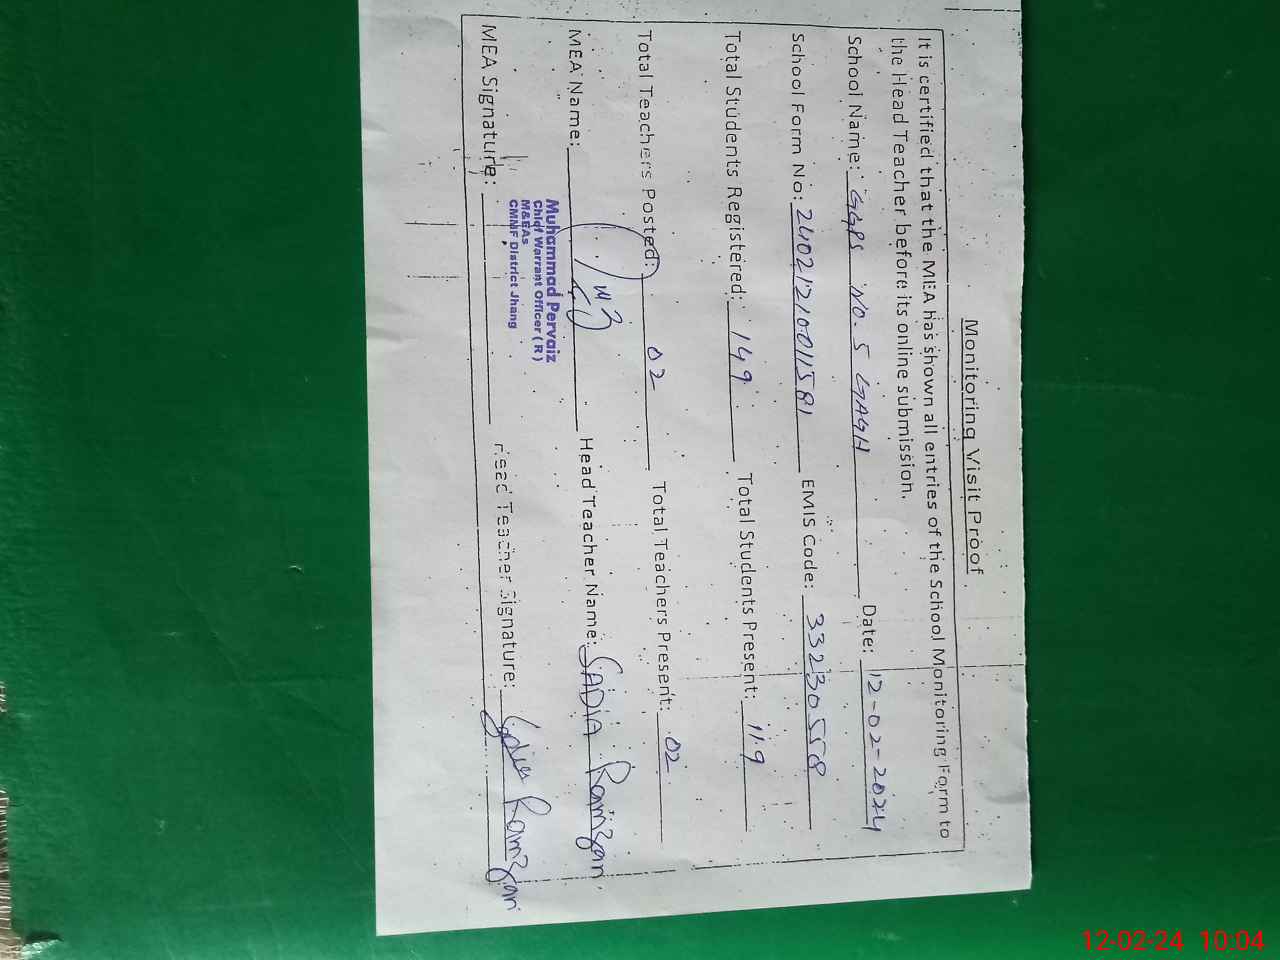 Monitoring Visit Proof
It is certified that the MEA has shown all entries of the School Monitoring Form to
the Head Teacher before its online submission.
School Name: GGPS No. 5 GAGH Date: 12-02-2024
School Form No: 24021210011581 EMIS Code: 33230558
Total Students Registered: 149 Total Students Present: 119
Total Teachers Posted: 02 Total Teachers Present: 02
MEA Name: Head Teacher Name: SADIA Ramzan
Muhammad Pervaiz
Chief Warrant Officer (R)
M&EAs
CMMF District Jhang
MEA Signature: Head Teacher Signature: Sadia Ramzan
12-02-24 10:04